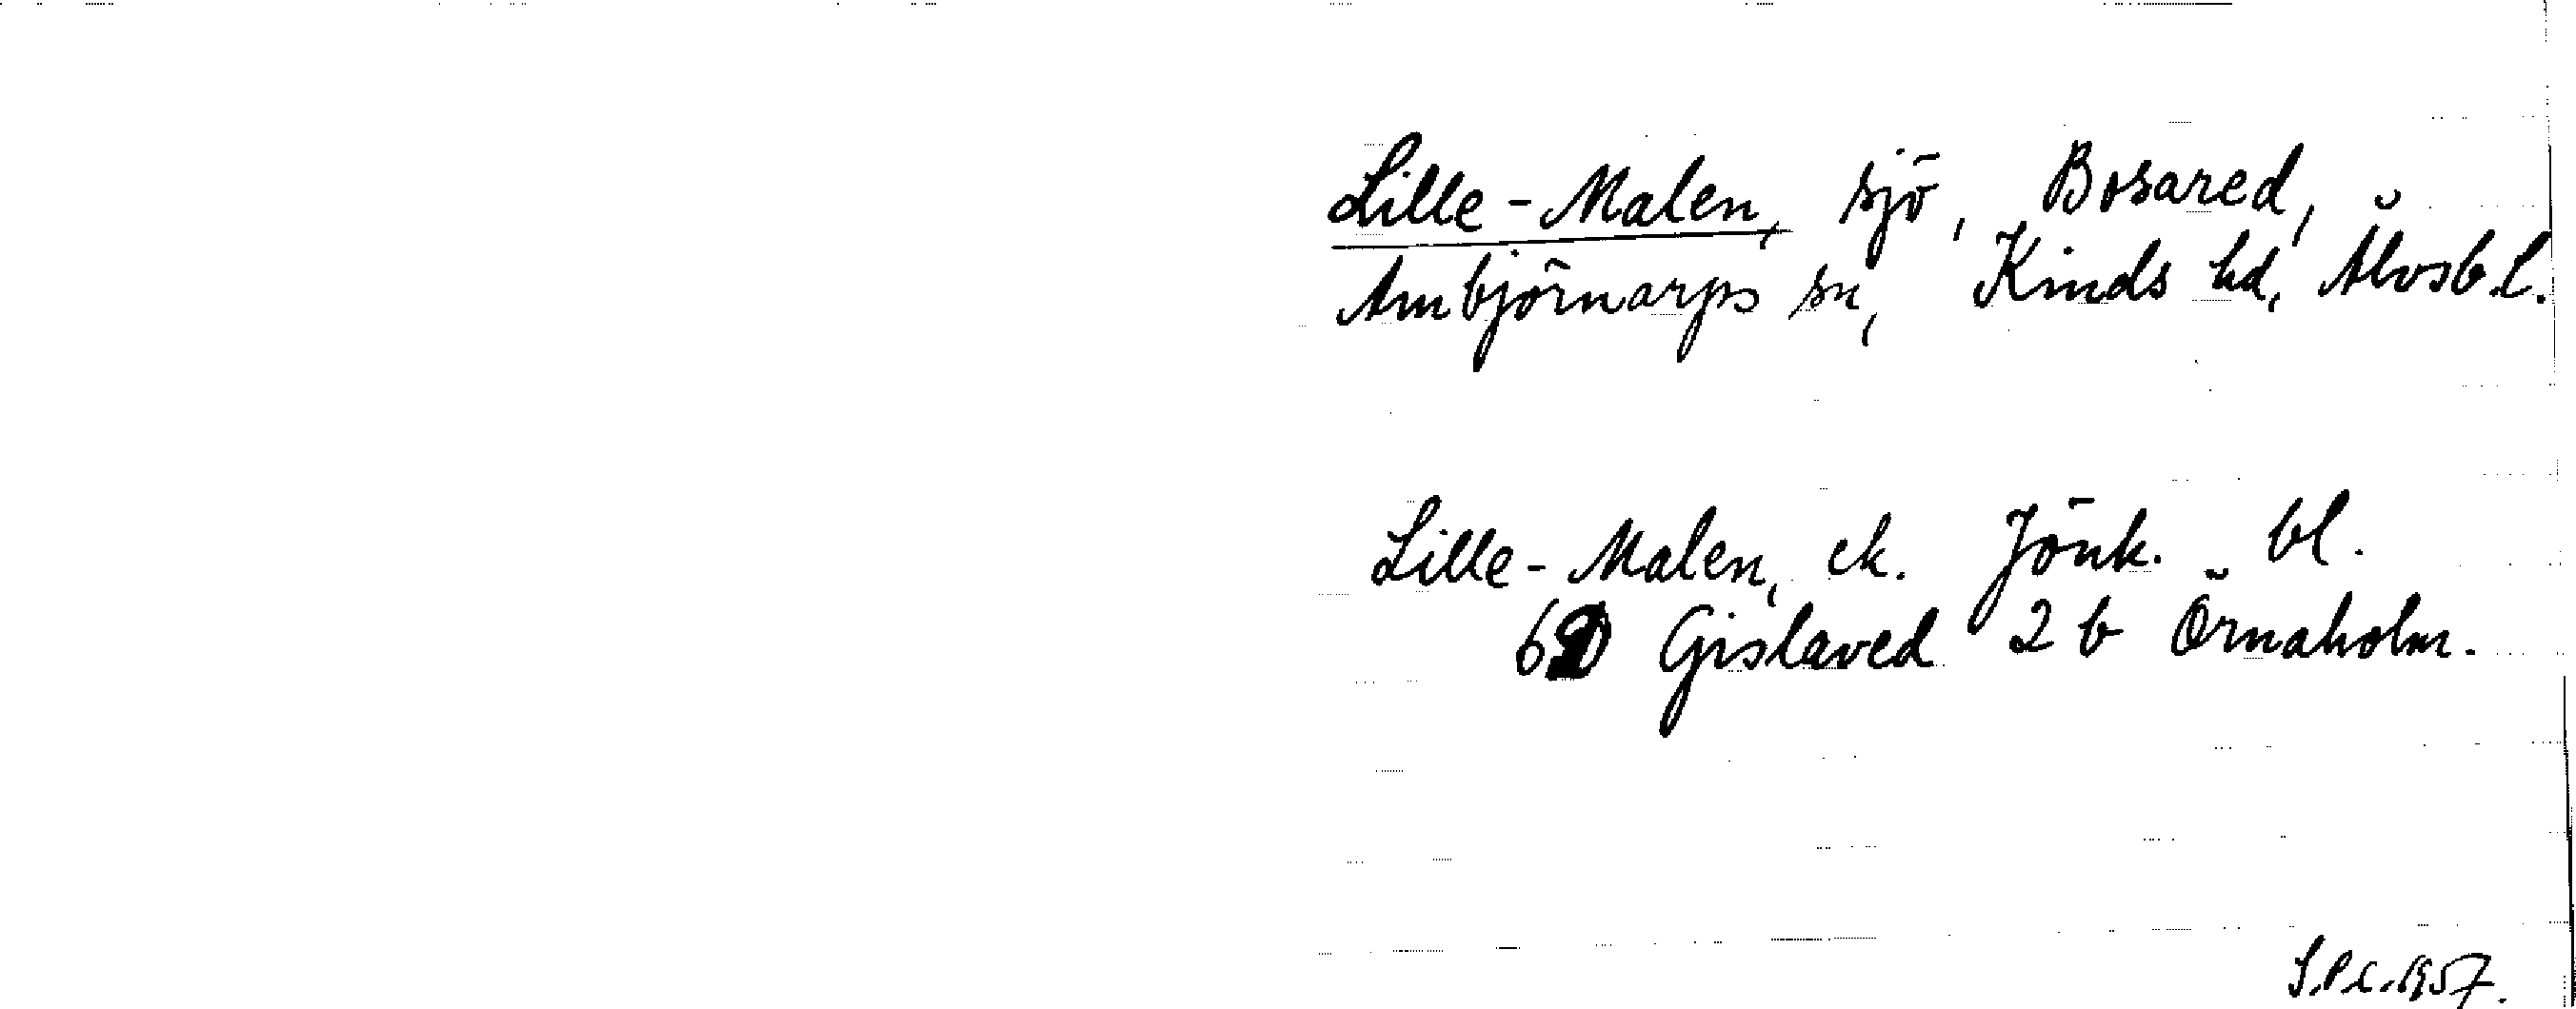 Lille-Malen, sjö, Bosared,
Ambjörnarps sn, Kinds hd, Älvsb.l.
Lille-Malen, ek. Jönk. bl.
6D Gislaved 2b Örnaholm.
S.P.C. 1957.